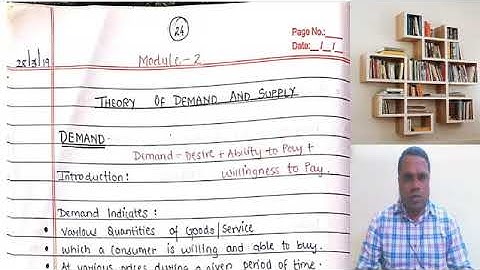 24
Page No.:
Date: __/__/__
Module-2
THEORY OF DEMAND AND SUPPLY
DEMAND
Demand = Desire + Ability to Pay +
Willingness to Pay.
Introduction:
Demand Indicates:
• Various Quantities of Goods/Service
• which a Consumer is willing and able to buy.
• At various prices during a given period of time.